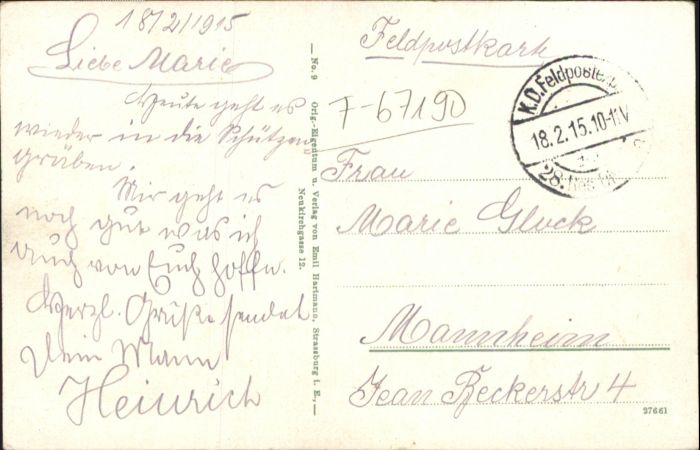 18/2/1915
Liebe Marie
Heute geht es
wieder in die Schützen
gräben.
Mir geht es
noch gut was ich
auch von Euch hoffe.
Herzl. Grüße sendet
Dein Mann
Heinrich
— No. 9 Orig.-Eigentum u. Verlag von Emil Hartmann, Strassburg i. E., —
Neukirchgasse 12.
Feldpostkarte
7-67190
K.D.Feldposte
18.2.15.10-11V
28.
Frau
Marie Gluck
Mannheim
Jean Beckerstr 4
27661